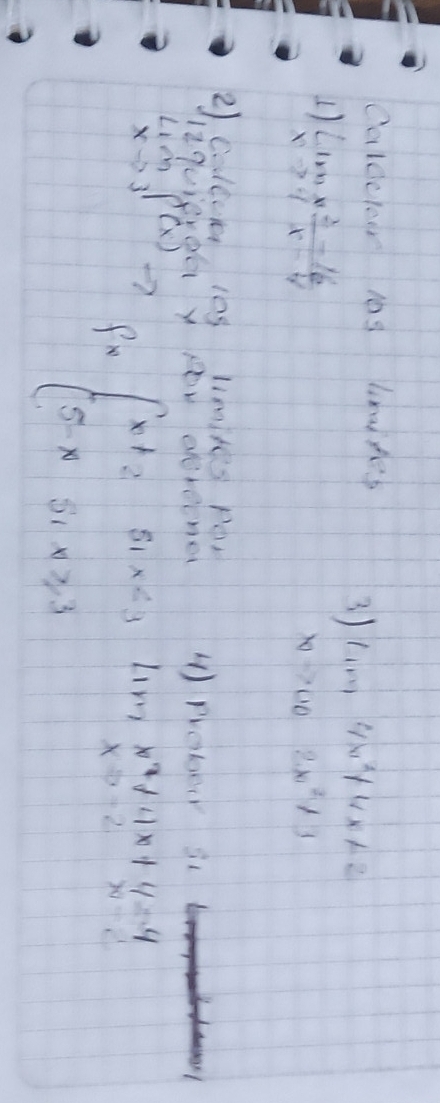 Calcular los limites
1) Lim x² - 16
x → 4 x - 4
2) Calcular los limites por
izquierda y por derecha
Lim f(x) →
x → 3
fx { x + 2 si x < 3
5 - x si x ≥ 3
3) Lim 4x² + 4x + 2
x → ∞ 2x² + 3
4) Probar si
Lim x² + 4x + 4 = 4
x → -2